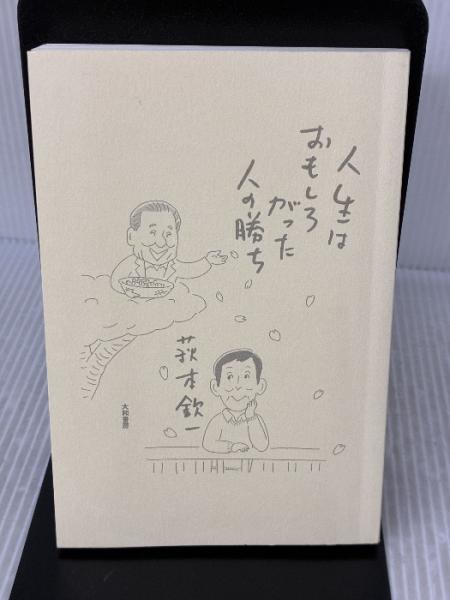 人生は
おもしろ
がった
人の勝ち
萩本欽一
大和書房